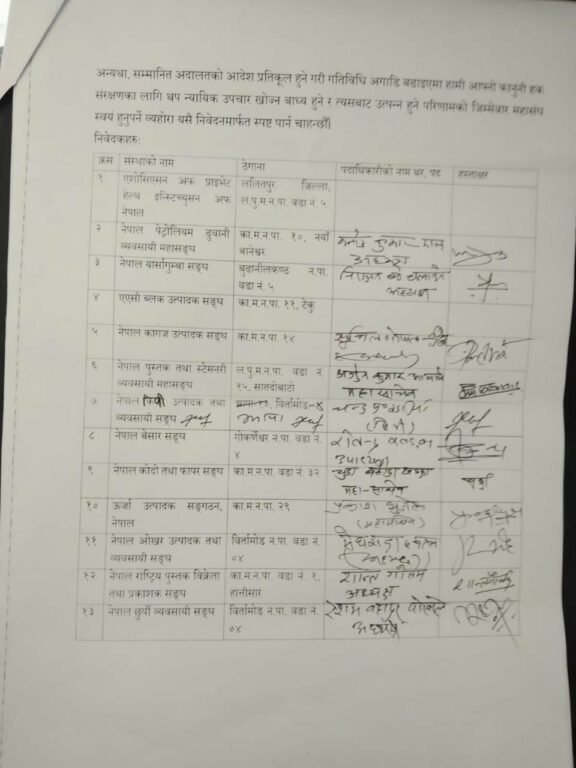 अन्यथा, सम्मानित अदालतको आदेश प्रतिकूल हुने गरी गतिविधि अगाडि बढाइएमा हामी आफ्नो कानुनी हक
संरक्षणका लागि थप न्यायिक उपचार खोज्न बाध्य हुने र त्यसबाट उत्पन्न हुने परिणामको जिम्मेवार महासंघ
स्वयं हुनुपर्ने व्यहोरा यसै निवेदनमार्फत स्पष्ट पार्न चाहन्छौं।
निवेदकहरु:
क्रस संस्थाको नाम ठेगाना पदाधिकारीको नाम थर, पद हस्ताक्षर
१ एशोसिएसन अफ प्राइभेट ललितपुर जिल्ला,
हेल्थ इन्स्टिच्युसन अफ ल.पु.म.न.पा. वडा नं. ५
नेपाल
२ नेपाल पेट्रोलियम ढुवानी का.म.न.पा. १०, नयाँ कुमार
व्यवसायी महासङ्घ बानेश्वर अध्यक्ष
३ नेपाल यार्सागुम्बा सङ्घ बुढानीलकण्ठ न.पा.
वडा नं. ५ अध्यक्ष
४ एएसी ब्लक उत्पादक सङ्घ का.म.न.पा. ११, टेकु
५ नेपाल कागज उत्पादक सङ्घ का.म.न.पा. १४
६ नेपाल पुस्तक तथा स्टेसनरी ल.पु.म.न.पा. वडा नं. अर्जुन कुमार
व्यवसायी महासङ्घ १५, सातदोबाटो महासचिव
७ नेपाल उत्पादक तथा विर्तामोड-४
व्यवसायी सङ्घ झापा
८ नेपाल बेसार सङ्घ गोकर्णेश्वर न.पा. वडा नं.
४ उपाध्यक्ष
९ नेपाल कोदो तथा फापर सङ्घ का.म.न.पा. वडा नं. ३२
महा-सचिव
१० ऊर्जा उत्पादक सङ्गठन, का.म.न.पा. २९ प्रकाश
नेपाल (महासचिव)
११ नेपाल ओखर उत्पादक तथा विर्तामोड न.पा. वडा नं.
व्यवसायी सङ्घ ०४
१२ नेपाल राष्ट्रिय पुस्तक विक्रेता का.म.न.पा. वडा नं. १, शान्त गौतम
तथा प्रकाशक सङ्घ हात्तीसार अध्यक्ष
१३ नेपाल छुर्पी व्यवसायी सङ्घ विर्तामोड न.पा. वडा नं. बहादुर
०४ अध्यक्ष